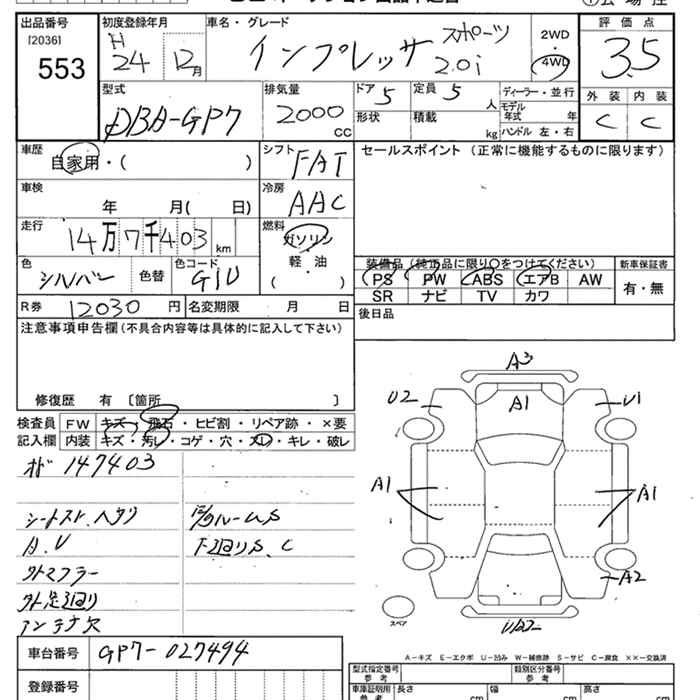 出品番号
[2036]
553
初度登録年月
H 24 12月
車名・グレード
インプレッサ スポーツ 2.0i
2WD
・
4WD
評価点
3.5
外装 内装
C C
型式
DBA-GP7
排気量
2000 CC
ドア 5
形状
定員 5 人
積載 kg
ディーラー・並行
モデル年式 年
ハンドル 左・右
車歴
自家用・( )
シフト FAT
セールスポイント (正常に機能するものに限ります)
車検
年 月( 日)
冷房 AAC
走行
14万7千403km
燃料
ガソリン
・
軽・油
・
( )
色
シルバー
色替
色コード
G1U
装備品 (純正品に限り○をつけてください)
新車保証書
PS PW ABS エアB AW
SR ナビ TV カワ
有・無
R券 12030円
名変期限 月 日
後日品
注意事項申告欄(不具合内容等は具体的に記入して下さい)
修復歴 有 [箇所 ]
検査員記入欄
FW キズ・飛石・ヒビ割・リペア跡・×要
内装 キズ・汚レ・コゲ・穴・スレ・キレ・破レ
147403
シートスレ、ヘタリ
A.U
外マフラー
アンテナ欠
下回りS.C
A3
U2
A1
U1
A1
A1
A2
スペア
A-キズ E-エクボ U-凹み W-補修跡 S-サビ C-腐食 ××-交換済
車台番号 GP7-027494
登録番号
型式指定番号
参考
類別区分番号
参考
車庫証明用
参考
長さ cm
幅 cm
高さ cm